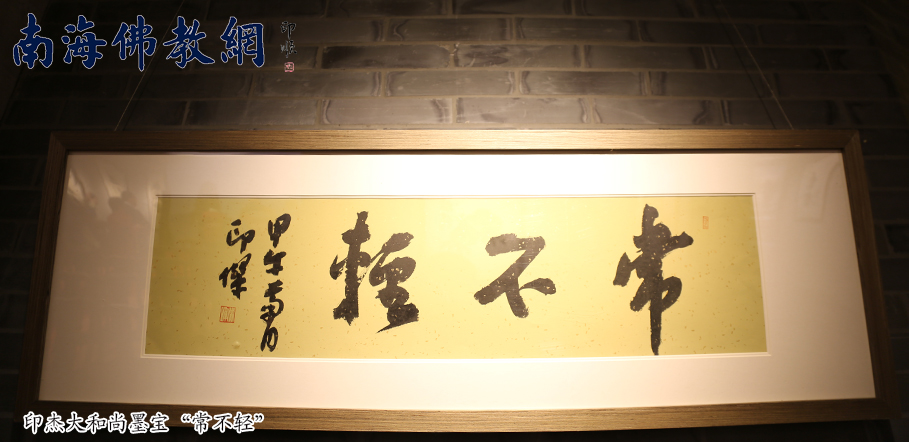 南海佛教網
印順
常不輕
甲午菊月
印傑
印杰大和尚墨宝“常不轻”